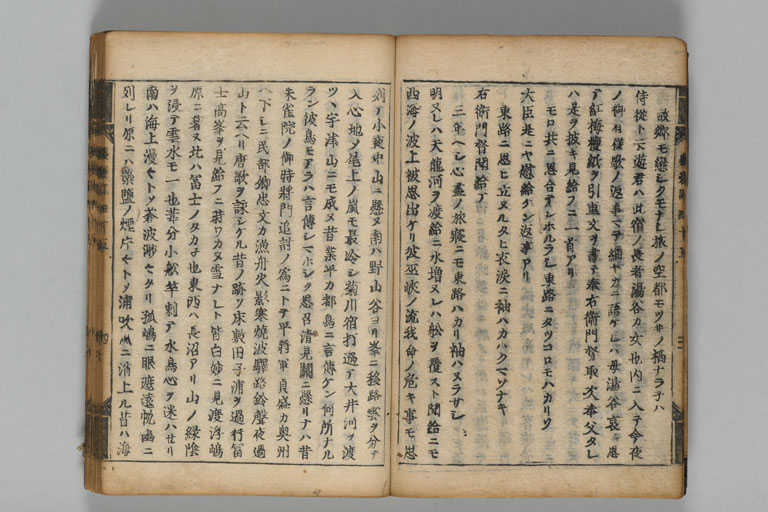 故郷モ恋シクモナシ旅ノ空都モツヰノ栖ナラ子ハ
侍従ト云遊君ハ此宿ノ長者湯谷カ女也内ニ入テ今夜
ノ御有様歌ノ返事マテ細ヤカニ語ケレハ母湯谷哀ニ思
テ紅梅檀紙ヲ引重文ヲ書テ奉右衛門督取次奉父タレ
ハ是ヲ披キ見給フニ一首アリ
モロ共ニ思合テシホルラシ東路ニタツコロモハカリソ
大臣是ニヤ慰給ケン返事アリ
東路ニ思ヒ立ヌルタヒ衣涙ニ袖ハカハクマソナキ
右衛門督聞給テ
三年ヘシ心盡ノ旅寝ニモ東路ハカリ袖ハヌラサシ
明ヌレハ天龍河ヲ渡給ニ水増ヌレハ舩ヲ覆スト聞給ニモ
西海ノ波上被思出ケリ彼巫峡ノ流我命ノ危キ事モ思
列テ小夜中山ニ懸ヌ南ハ野山谷ヨリ峯ニ移路雲ヲ分テ
入心地メ尾上ノ嵐モ最冷シ菊川宿打過テ大井河ヲ渡
ツヽ宇津山ニモ成ヌ昔業平カ都鳥ニ言傳ケン何所ナル
ラン彼鳥モアラハ言傳シマホシク思召清見關ニ懸リナハ昔
朱雀院ノ御時將門追討ノ為ニトテ平將軍貞盛カ奥州
ヘ下シニ民部卿忠文カ漁舟火影寒燒波驛路鈴聲夜過
山ト云ヘリ唐歌ヲ詠シケル昔ノ跡ソ床敷田子浦ヲ過行冨
士高峯ヲ見給フニ時ワカヌ雪ナレト皆白妙ニ見渡浮嶋
原ニ着ヌ北ハ冨士ノタカ子也東西ハ長沼アリ山ノ緑陰
ヲ浸テ雲水モ一也葦分小舩竿刺テ水鳥心ヲ迷ハセリ
南ハ海上漫々トソ蒼波渺々タリ孤嶋ニ眼遮遠帆幽ニ
列レリ原ニハ藻鹽ノ煙片々トソ浦吹風ニ消上ル昔ハ海